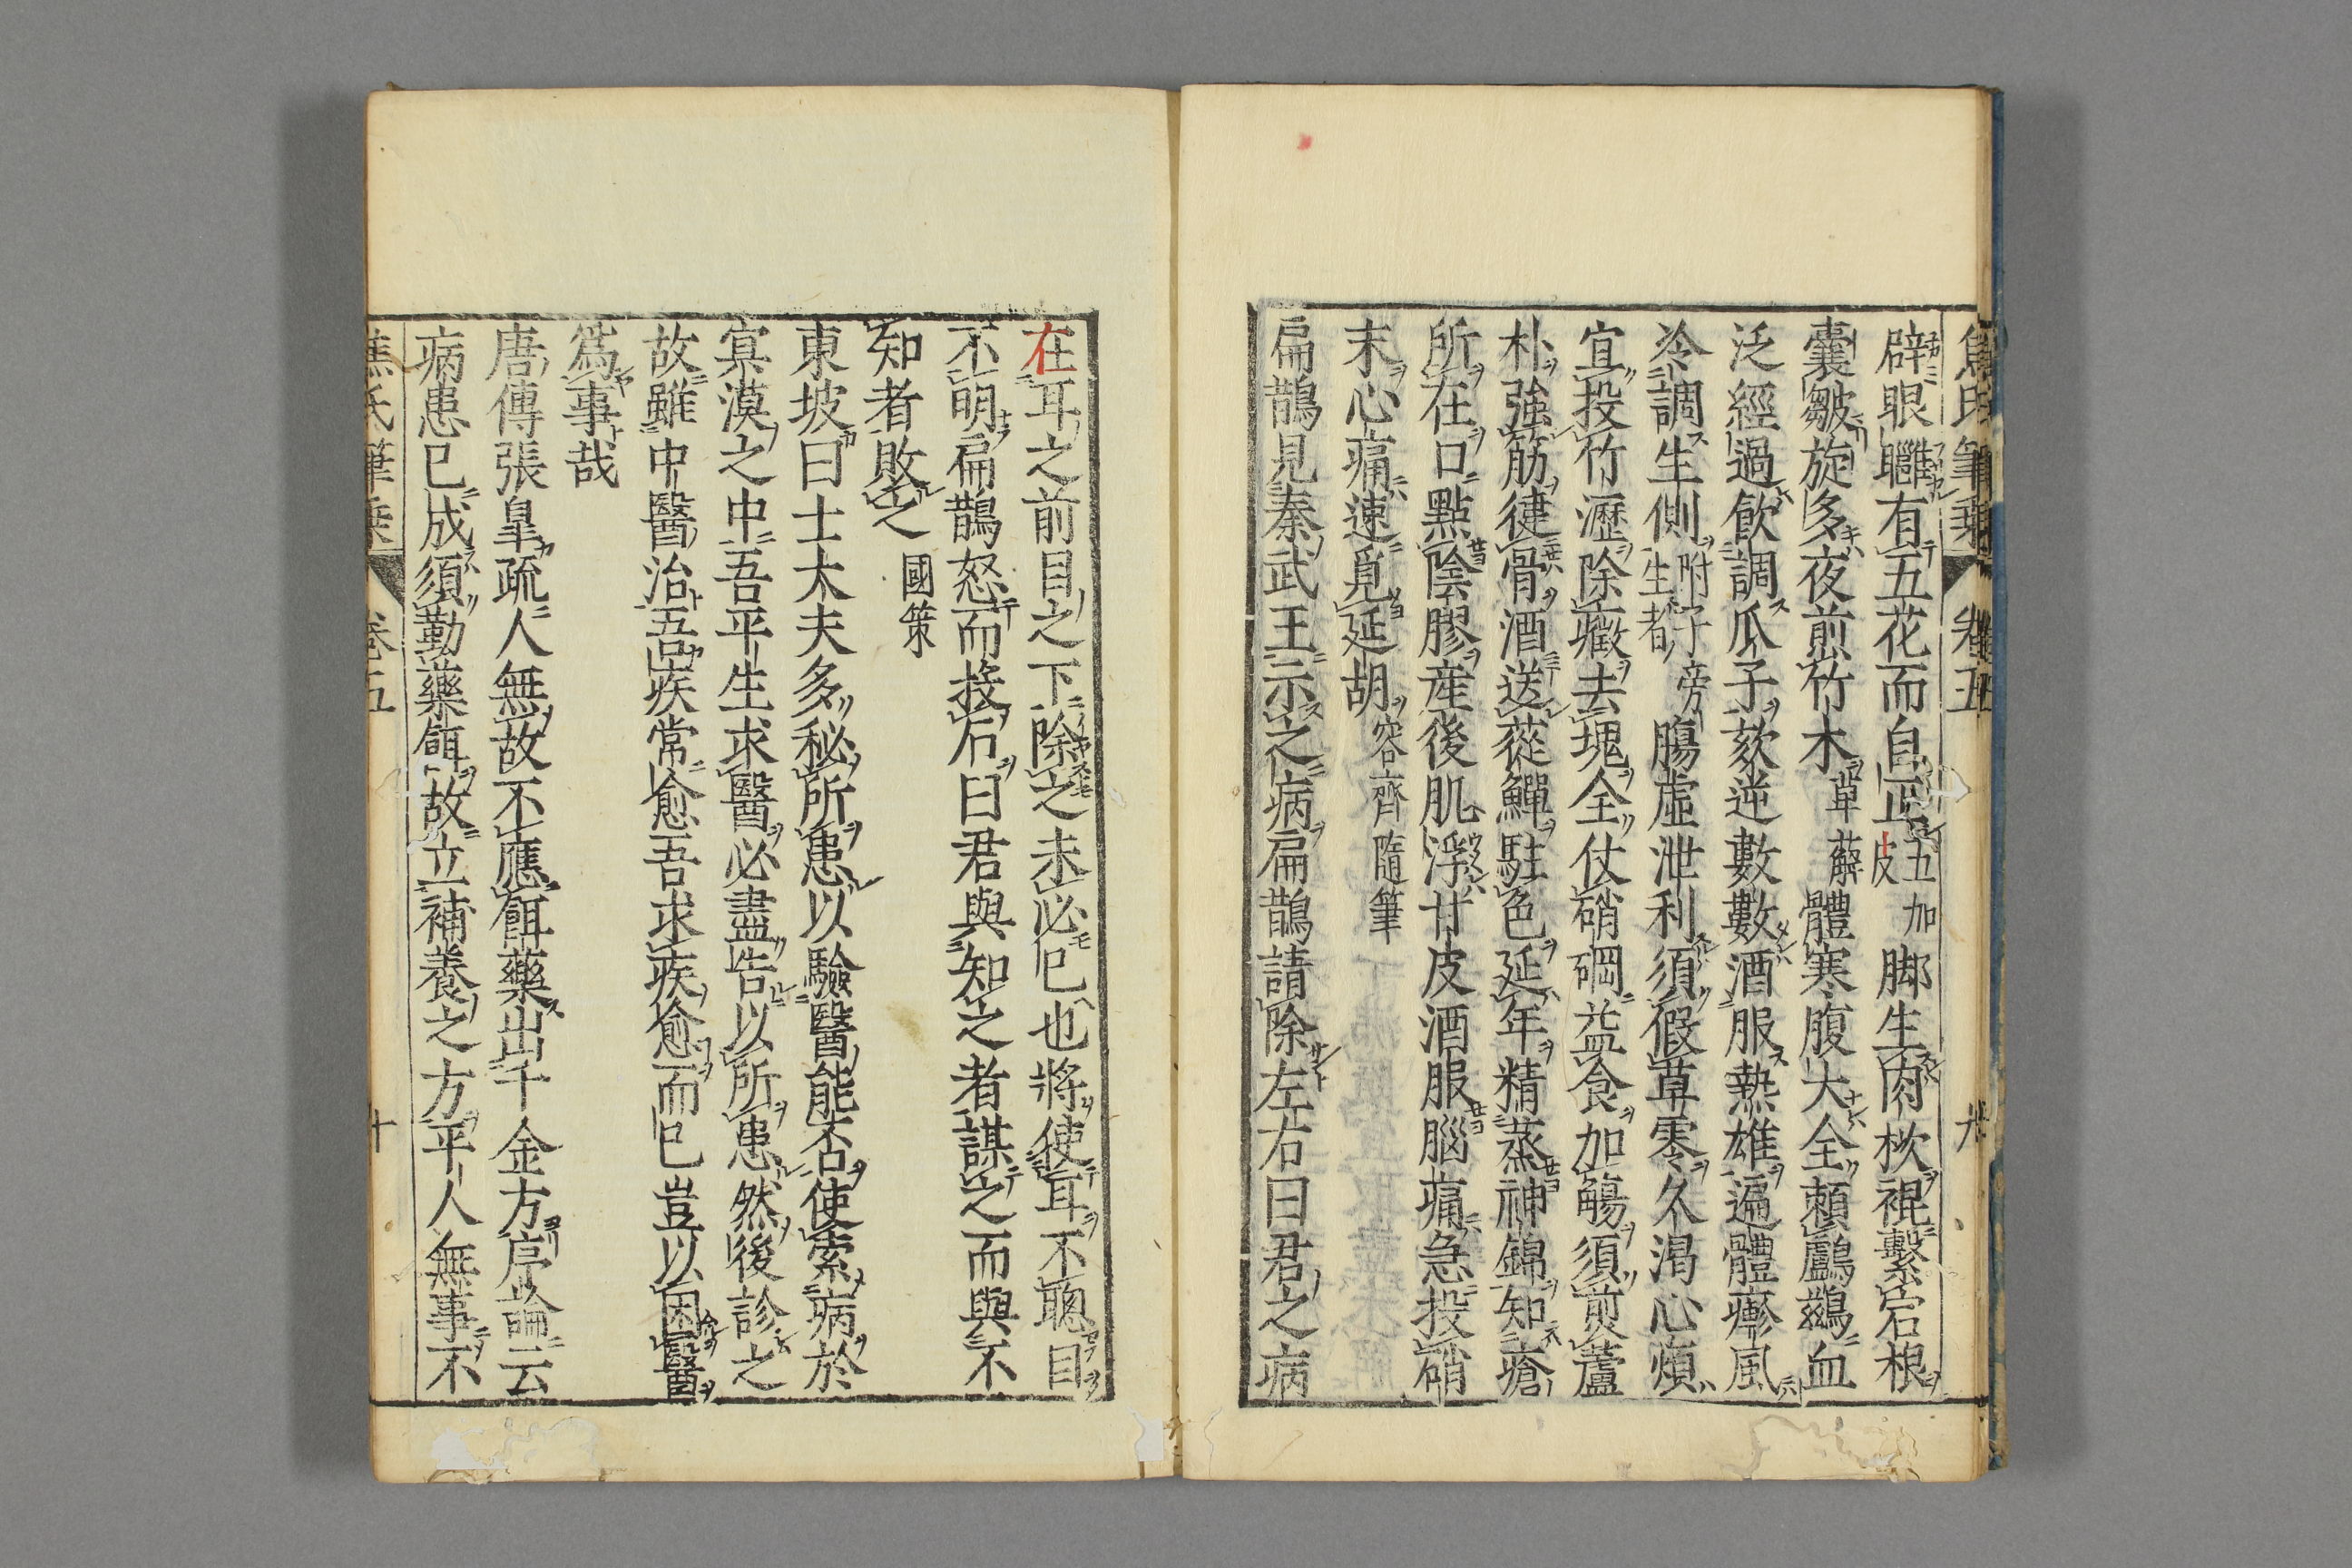 焦氏筆乗 卷五 九
辟眼䁪有五花而自正五加皮脚生肉枕裩繫宕根
囊皺旋多夜煎竹木萆薢體寒腹大全頼鸕鷀血
泛經過飲調瓜子欬逆數數酒服熟雄遍體瘮風
冷調生側附子旁生者腸虛泄利須假草零久渴心煩
宜投竹瀝除癥去塊全仗硝碙益食加觴須煎蘆
朴強筋健骨酒送蓯鱓駐色延年精蒸神錦知瘡
所在口點陰膠産後肌浮甘皮酒服腦痛急投硝
末心痛速覓延胡容齊隨筆
扁鵲見秦武王示之病扁鵲請除左右曰君之病
在耳之前目之下除之未必已也將使耳不聰目
不明扁鵲怒而投石曰君與知之者謀之而與不
知者敗之國策
東坡曰士大夫多秘所患以驗醫能否使索病於
寞漠之中吾平生求醫必盡告以所患然後診之
故雖中醫治吾疾常愈吾求疾愈而已豈以困醫
爲事哉
唐傳張皐疏人無故不應餌藥出千金方序論云
病患已成須勤藥餌故立補養之方平人無事不
焦氏筆乗 卷五 十